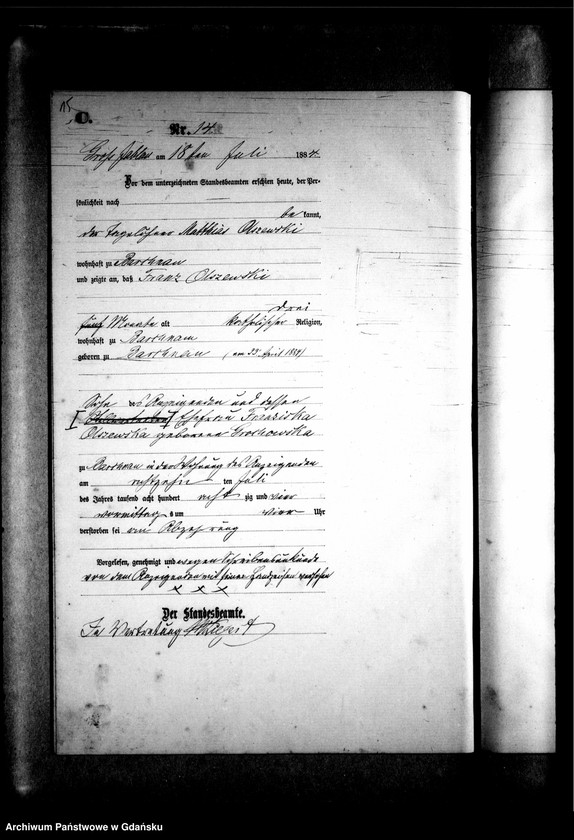 15
C.
Nr. 14
Groß Jablau am 18ten Juli 1884.
Vor dem unterzeichneten Standesbeamten erschien heute, der Per-
sönlichkeit nach
be kannt,
der Tagelöhner Matthias Olszewski
wohnhaft zu Barchnau
und zeigte an, daß Franz Olszewski
drei
fünf Monate alt katholischer Religion,
wohnhaft zu Barchnau
geboren zu Barchnau (am 23. April 1884)
Sohn des Anzeigenden und dessen
Ehefrau Franziska
Olszewska geborene Grochowska
zu Barchnau in der Wohnung des Anzeigenden
am achtzehn ten Juli
des Jahres tausend acht hundert acht zig und vier
vormittags um vier Uhr
verstorben sei an Abzehrung
Vorgelesen, genehmigt und wegen Schreibensunkunde
von dem Anzeigenden mit seinem Handzeichen versehen
x x x
Der Standesbeamte.
In Vertretung
Archiwum Państwowe w Gdańsku